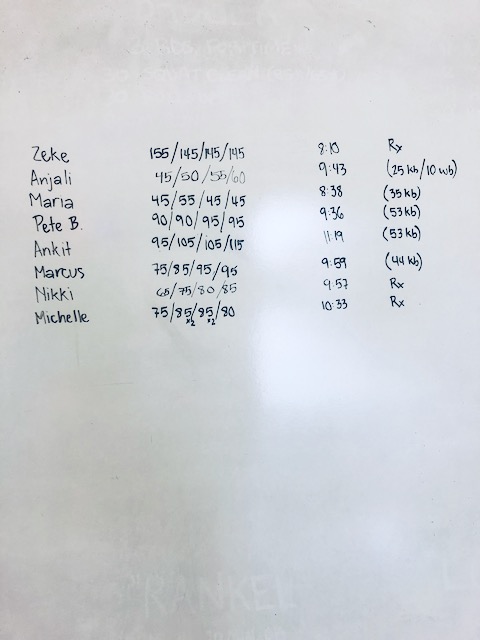 Zeke 155/145/145/145 8:10 Rx
Anjali 45/50/55/60 9:43 (25 kb/10 wb)
Maria 45/55/45/45 8:38 (35 kb)
Pete B. 90/90/95/95 9:36 (53 kb)
Ankit 95/105/105/115 11:19 (53 kb)
Marcus 75/85/95/95 9:59 (44 kb)
Nikki 65/75/80/85 9:57 Rx
Michelle 75/85/85/80 10:33 Rx
x2 x2
"FRANKEN